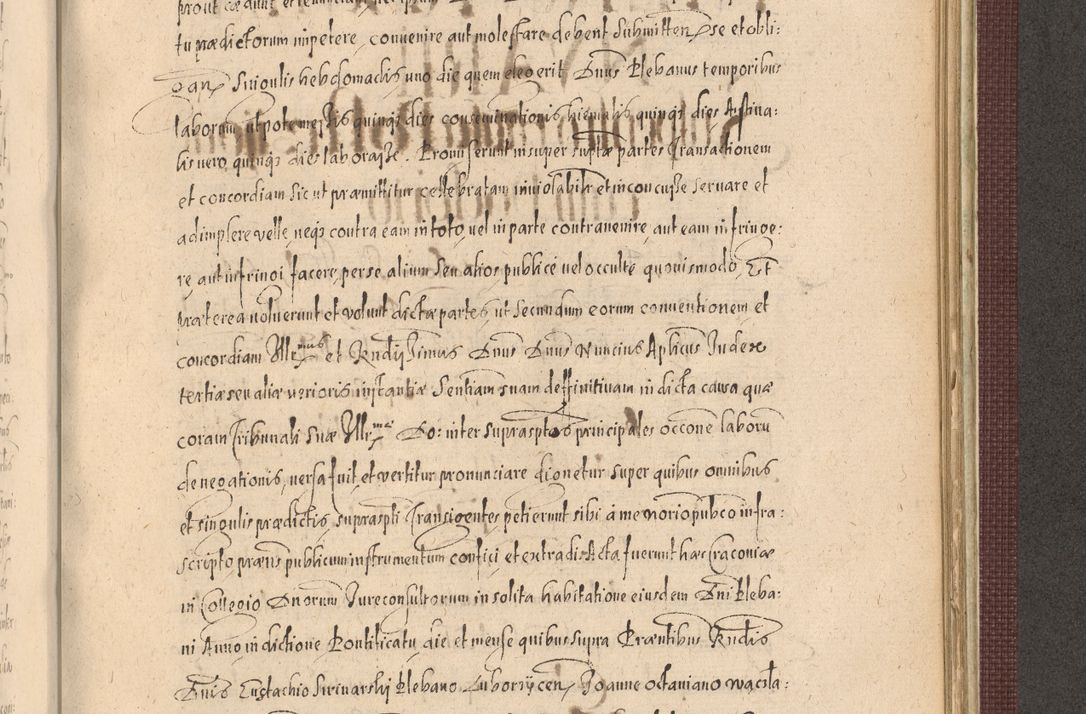 tu prædictorum impetere, convenire aut molestare debent submitten se et obli:
gan Singulis hebdomadis uno die quem elegerit Dnus Plebanus temporibus
laborum utpote messis quinq dies conseminationis hiemalis quinq dies Æstiva:
lis vero quinq dies laborasse. Promiserunt insuper supta partes Transactionem
et concordiam sic ut præmittitur cellebratam inviolabilr et inconcusse servare et
adimplere velle, neq contra eam in toto, vel in parte contravenire, aut eam infringe:
re, aut infringi facere, per se alium seu alios publice vel occulte quovismodo, Et
præterea voluerunt et volunt dictæ partes, ut secundum eorum conventionem et
concordiam Illrmus et Rndissimus Dnus Dnus Nuncius Aplicus Judex
tertiæ seu aliæ verioris instantiæ Sentiam suam deffinitivam in dicta causa quæ
coram Tribunali suæ Illrmæ Do: inter suprasptos principales occone laborū
denegationis, versa fuit, et vertitur pronunciare dignetur super quibus omnibus
et singulis prædictis, supraspti Transigentes petierunt sibi a me norio pubco infra:
scripto, præns publicum instrumentum confici, et extradi. Acta fuerunt hæc Cracoviæ
in Collegio Dnorum Jureconsultorum in solita habitatione eiusdem Dni Pleba:
ni Anno indictione Pontificatu, die et mense quibus supra Præntibus Rndis
Dnis Eustachio Sirivarski Plebano Luborzycen, Joanne octaviano waczla: